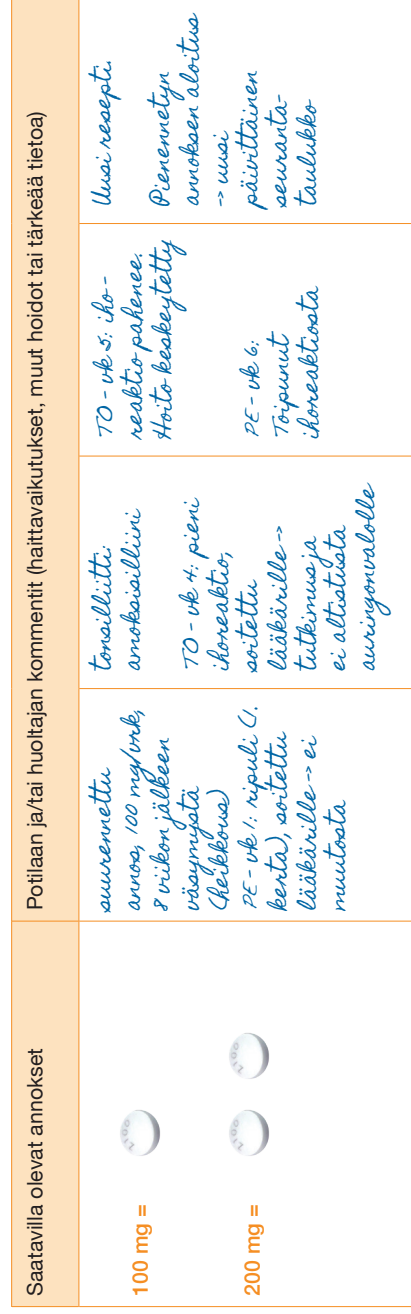 Saatavilla olevat annokset
Potilaan ja/tai huoltajan kommentit (haittavaikutukset, muut hoidot tai tärkeää tietoa)
100 mg =
200 mg =
suurennettu
annos, 100 mg/vrk,
8 viikon jälkeen
väsymystä
(heikkous)
PE - vk 1: ripuli (1.
kerta), soitettu
lääkärille -> ei
muutosta
tonsilliitti:
amoksisilliini
TO - vk 4: pieni
ihoreaktio,
soitettu
lääkärille ->
tutkimus ja
ei altistusta
auringonvalolle
TO - vk 5: iho-
reaktio pahenee.
Hoito keskeytetty
PE - vk 6:
Toipunut
ihoreaktiosta
Uusi resepti.
Pienennetyn
annoksen aloitus
-> uusi
päivittäinen
seuranta-
taulukko